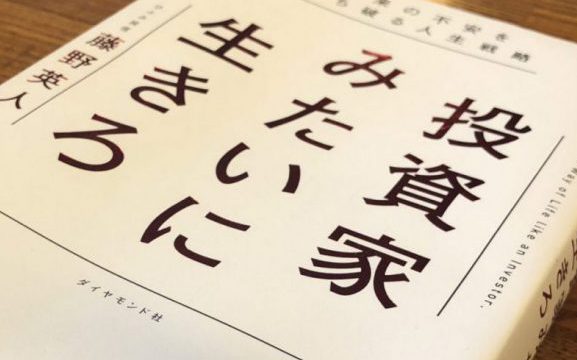 来の不安を
ち破る人生戦略
投資家
みたいに
生きろ
ひふみ投信
藤野英人
Way of Life like an Investor.
ダイヤモンド社